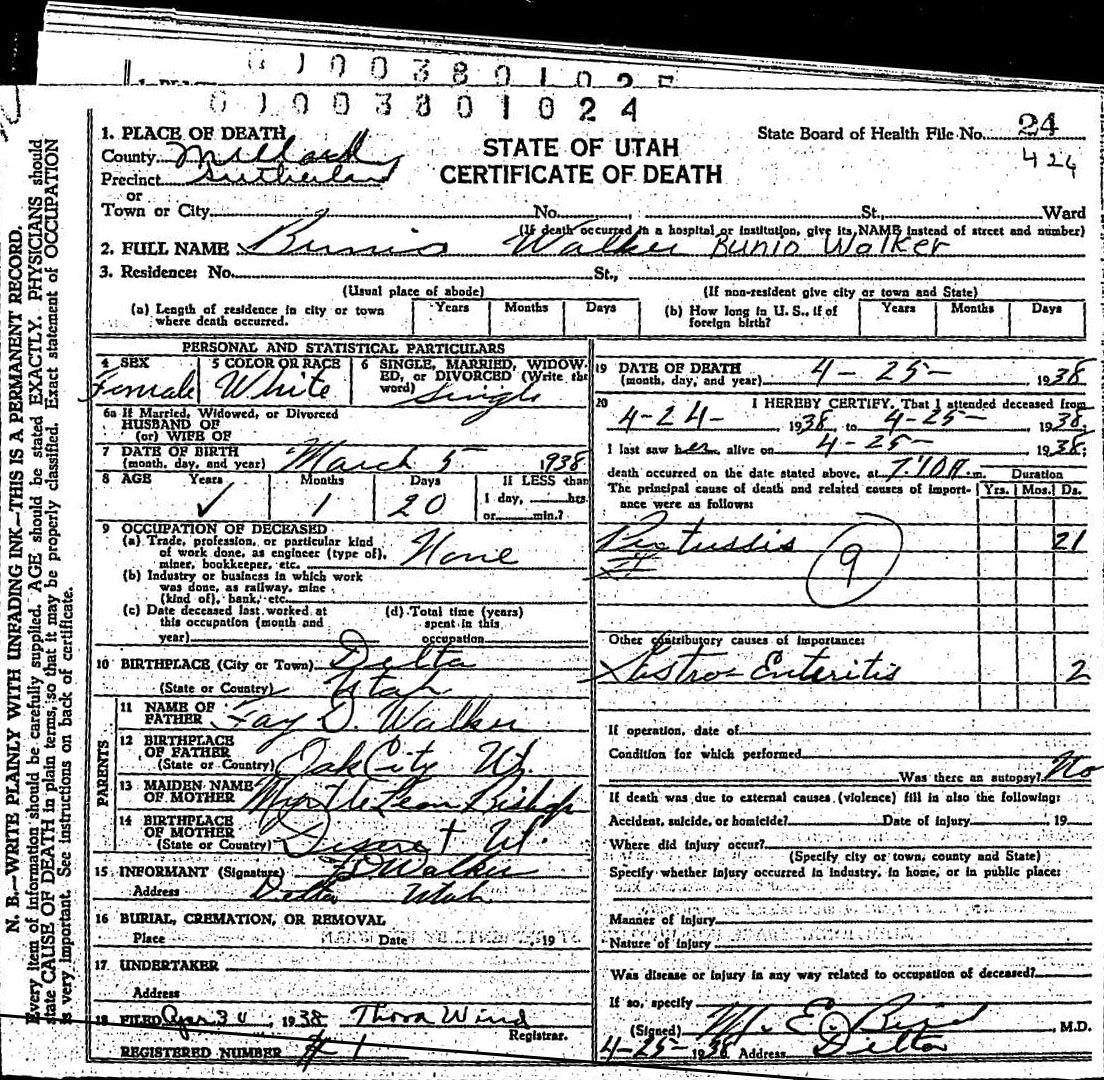 01003801025
01003801024
1. PLACE OF DEATH
County Millard
Precinct Sutherland
or
Town or City No. St., Ward
(If death occurred in a hospital or institution, give its NAME instead of street and number)
STATE OF UTAH
CERTIFICATE OF DEATH
State Board of Health File No. 24
424
2. FULL NAME Bunio Walker Bunio Walker
3. Residence: No. St.,
(Usual place of abode) (If non-resident give city or town and State)
(a) Length of residence in city or town where death occurred. Years Months Days
(b) How long in U. S., if of foreign birth? Years Months Days
PERSONAL AND STATISTICAL PARTICULARS
4 SEX Female
5 COLOR OR RACE White
6 SINGLE, MARRIED, WIDOWED, or DIVORCED (Write the word) Single
6a If Married, Widowed, or Divorced
HUSBAND OF
(or) WIFE OF
7 DATE OF BIRTH
(month, day, and year) March 5 1938
8 AGE Years ✓ Months 1 Days 20
If LESS than
1 day, hrs.
or min.?
9 OCCUPATION OF DECEASED
(a) Trade, profession, or particular kind
of work done, as engineer (type of),
miner, bookkeeper, etc. None
(b) Industry or business in which work
was done, as railway, mine
(kind of), bank, etc.
(c) Date deceased last worked at
this occupation (month and
year)
(d) Total time (years)
spent in this
occupation
10 BIRTHPLACE (City or Town) Delta
(State or Country) Utah
PARENTS
11 NAME OF
FATHER Fay D. Walker
12 BIRTHPLACE
OF FATHER
(State or Country) Oak City Ut.
13 MAIDEN NAME
OF MOTHER Myrtle Leon Bishop
14 BIRTHPLACE
OF MOTHER
(State or Country) Deseret Ut.
15 INFORMANT (Signature) F D Walker
Address Delta Utah
16 BURIAL, CREMATION, OR REMOVAL
Place Date 19
17 UNDERTAKER
Address
18 FILED Apr 30, 1938 Thora Wind
Registrar.
REGISTERED NUMBER # 1
19 DATE OF DEATH
(month, day, and year) 4-25- 1938
20 I HEREBY CERTIFY, That I attended deceased from
4-24- 1938, to 4-25- 1938,
I last saw her alive on 4-25- 1938;
death occurred on the date stated above, at 7:10 A.m. Duration
The principal cause of death and related causes of importance were as follows: Yrs. Mos. Ds.
Pertussis 21
9
Other contributory causes of importance:
Gastro-Enteritis 2
If operation, date of
Condition for which performed
Was there an autopsy? No
If death was due to external causes (violence) fill in also the following:
Accident, suicide, or homicide? Date of injury 19
Where did injury occur?
(Specify city or town, county and State)
Specify whether injury occurred in industry, in home, or in public place:
Manner of injury
Nature of injury
Was disease or injury in any way related to occupation of deceased?
If so, specify
(Signed) M. E. Bird, M.D.
4-25- 1938 Address Delta
N. B.—WRITE PLAINLY WITH UNFADING INK—THIS IS A PERMANENT RECORD.
Every item of information should be carefully supplied. AGE should be stated EXACTLY. PHYSICIANS should
state CAUSE OF DEATH in plain terms, so that it may be properly classified. Exact statement of OCCUPATION
is very important. See instructions on back of certificate.